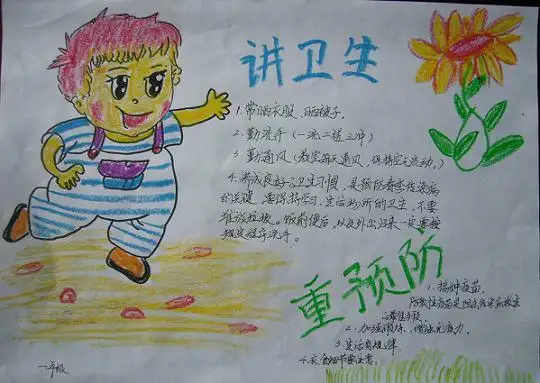 讲卫生
1. 常洒衣服、晒被子。
2. 勤洗手（一洗二搓三冲）
3. 勤通风（教室每天通风，保持空气流动。）
4. 养成良好的卫生习惯，是预防春季传染病
的关键，要保持学习、生活场所的卫生，不要
堆放垃圾。饭前便后，以及外出归来一定要按
规定程序洗手。
重预防
1. 接种疫苗。
2. 加强锻炼，增强免疫力。
3. 生活有规律
4. 衣食细节要注意。